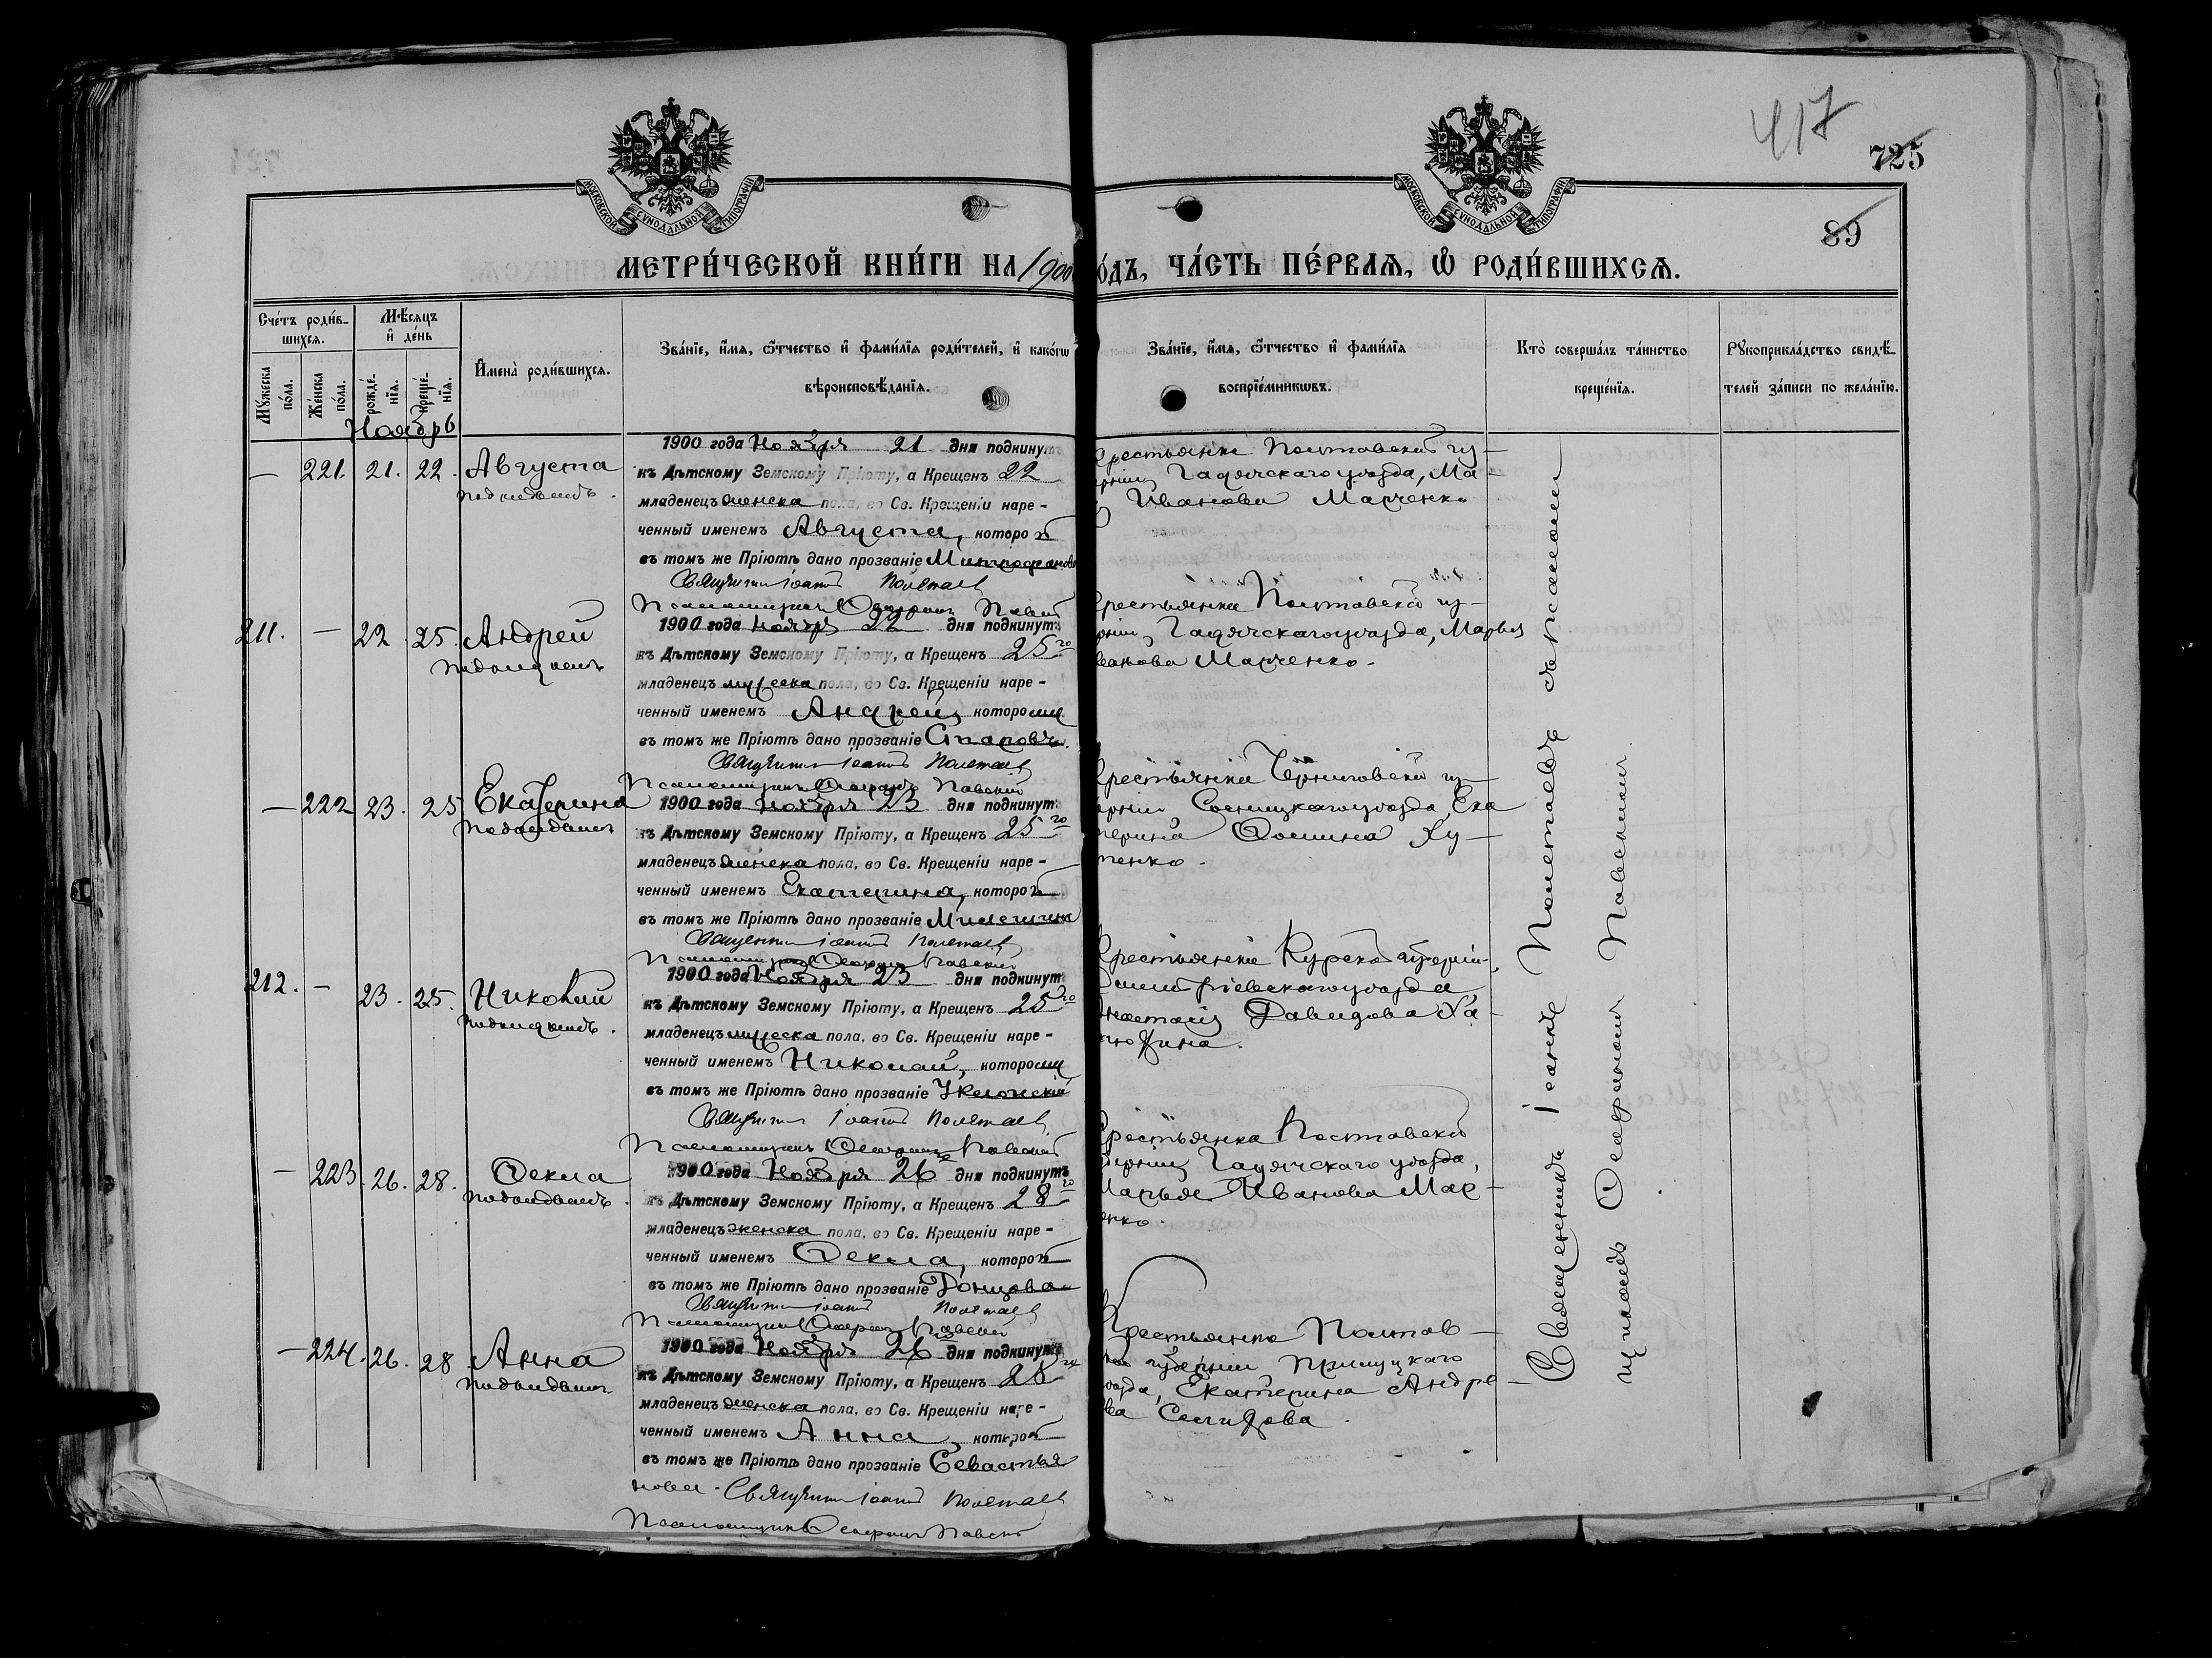 417
725
89
МОСКОВСКОЙ СѴНОДАЛЬНОЙ ТИПОГРАФІИ
МОСКОВСКОЙ СѴНОДАЛЬНОЙ ТИПОГРАФІИ
МЕТРИ́ЧЕСКОЙ КНИ́ГИ НА 1900
О́ДЪ, ЧА́СТЬ ПЕ́РВАѦ, Ѡ РОДИ́ВШИХСѦ.
Сче́тъ роди́в-
шихсѧ.
Мꙋ́жеска по́ла.
Же́нска по́ла.
Мѣ́сѧцъ и҆ де́нь
рожде́-нїѧ.
креще́-нїѧ.
И҆мена̀ роди́вшихсѧ.
Зва́нїе, и҆́мѧ, ѻ҆́тчество и҆ фами́лїѧ роди́телей, и҆ како́гѡ
вѣроисповѣ́данїѧ.
Зва́нїе, и҆́мѧ, ѻ҆́тчество и҆ фами́лїѧ
воспрїе́мникѡвъ.
Кто̀ соверша́лъ та́инство
креще́нїѧ.
Рꙋкоприкла́дство свидѣ́-
телей за́писи по жела́нїю.
Ноябрь
— 221. 21. 22. Августа
подкидышъ.
1900 года Ноября 21 дня подкинут
къ Дѣтскому Земскому Пріюту, а Крещенъ 22
младенецъ женска пола, во Св. Крещеніи наре-
ченный именемъ Августа, которой
въ томъ же Пріютѣ дано прозваніе Митрофанова
Священникъ Іоаннъ Полетаевъ
Псаломщикъ Павскій
рестьянка Полтавской гу-
рніи, Гадячскаго уѣзда, Ма-
Иванова Марченко
211. — 22. 25. Андрей
подкидышъ
1900 года Ноября 22 дня подкинутъ
къ Дѣтскому Земскому Пріюту, а Крещенъ 25го
младенецъ мужеска пола, во Св. Крещеніи наре-
ченный именемъ Андрей, которому
въ томъ же Пріютѣ дано прозваніе
Священникъ Іоаннъ Полетаевъ
Псаломщикъ Павскій
рестьянка Полтавской гу-
рніи, Гадячскаго уѣзда, Марья
ванова Марченко.
— 222 23. 25 Екатерина
подкидышъ
1900 года Ноября 23 дня подкинут
къ Дѣтскому Земскому Пріюту, а Крещенъ 25го
младенецъ женска пола, во Св. Крещеніи наре-
ченный именемъ Екатерина, которой
въ томъ же Пріютѣ дано прозваніе
Священникъ Іоаннъ Полетаевъ
Псаломщикъ Павскій
рестьянка Черниговской гу-
рніи Сосницкаго уѣзда, Ека
терина Фомина Ху-
тенко.
212. — 23. 25. Николай
подкидышъ.
1900 года Ноября 23 дня подкинут
къ Дѣтскому Земскому Пріюту, а Крещенъ 25го
младенецъ мужеска пола, во Св. Крещеніи наре-
ченный именемъ Николай, которому
въ томъ же Пріютѣ дано прозваніе
Священникъ Іоаннъ Полетаевъ
Псаломщикъ Павскій
рестьянка Курской губерніи,
митріевскаго уѣзда
настасія Давидова
— 223. 26. 28. Ѳекла
подкидышъ.
1900 года Ноября 26 дня подкинутъ
къ Дѣтскому Земскому Пріюту, а Крещенъ 28го
младенецъ женска пола, во Св. Крещеніи наре-
ченный именемъ Ѳекла, которой
въ томъ же Пріютѣ дано прозваніе Донцова
Священникъ Іоаннъ Полетаевъ
Псаломщикъ Павскій
рестьянка Полтавской
берніи, Гадячскаго уѣзда,
Марья Иванова Мар-
енко.
— 224. 26. 28 Анна
подкидышъ
1900 года Ноября 26 дня подкинутъ
къ Дѣтскому Земскому Пріюту, а Крещенъ 28го
младенецъ женска пола, во Св. Крещеніи наре-
ченный именемъ Анна, которой
въ томъ же Пріютѣ дано прозваніе Севастья
нова. Священникъ Іоаннъ Полетаевъ
Псаломщикъ Павскій
Крестьянка Полтав-
губерніи Прилуцкаго
уѣзда, Екатерина Андре-
ва
Священникъ Іоаннъ Полетаевъ съ псаломі
щикомъ Павскимъ.